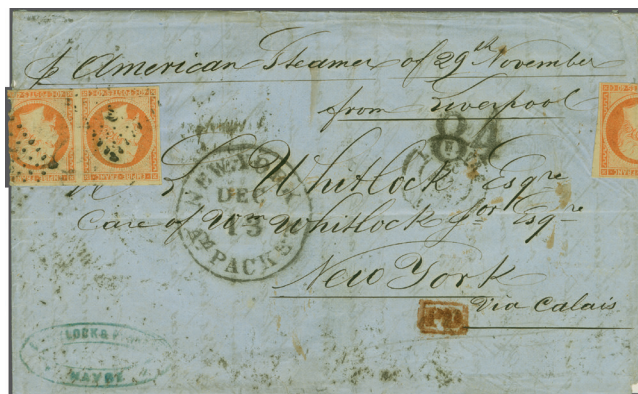 p American Steamer of 29th November
from Liverpool
84
Whitlock Esqre
Care of Wm Whitlock Jor Esqre
New York
Via Calais
NEW YORK
DEC
13
AM PACKET
PD
LOCK &
HAVRE